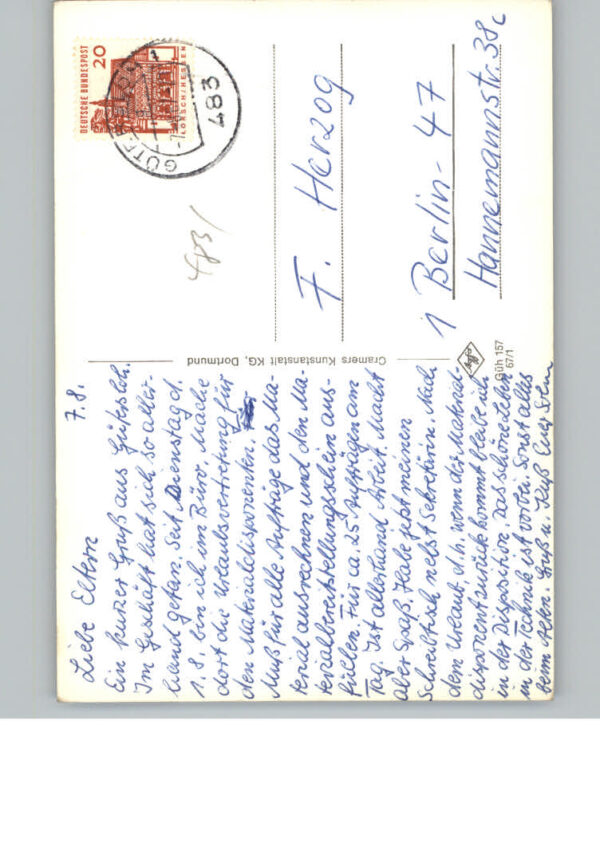 7.8.
Liebe Eltern
Ein kurzer Gruß aus Gütersloh.
Im Geschäft hat sich so aller-
hand getan. Seit Dienstag d.
1.8. bin ich im Büro. Mache
dort die Urlaubsvertretung für
den Materialdisponenten.
Muß für alle Aufträge das Ma-
terial ausrechnen und den Ma-
terialbereitstellungsschein aus-
füllen. Für ca. 25 Aufträgen am
Tag. Ist allerhand Arbeit. Macht
aber Spaß. Habe jetzt meinen
Schreibtisch nebst Sekretärin. Nach
dem Urlaub, d.h. wenn der Material-
disponent zurück kommt bleibe ich
in der Disposition. Das schöne Leben
in der Technik ist vorbei. Sonst alles
beim Alten. Gruß u. Kuß Euer
Cramers Kunstanstalt KG, Dortmund
Güh 157
67/1
DEUTSCHE BUNDESPOST
20
LORSCH/HESSEN
483
483/
F. Herzog
1 Berlin - 47
Hannemannstr. 38c